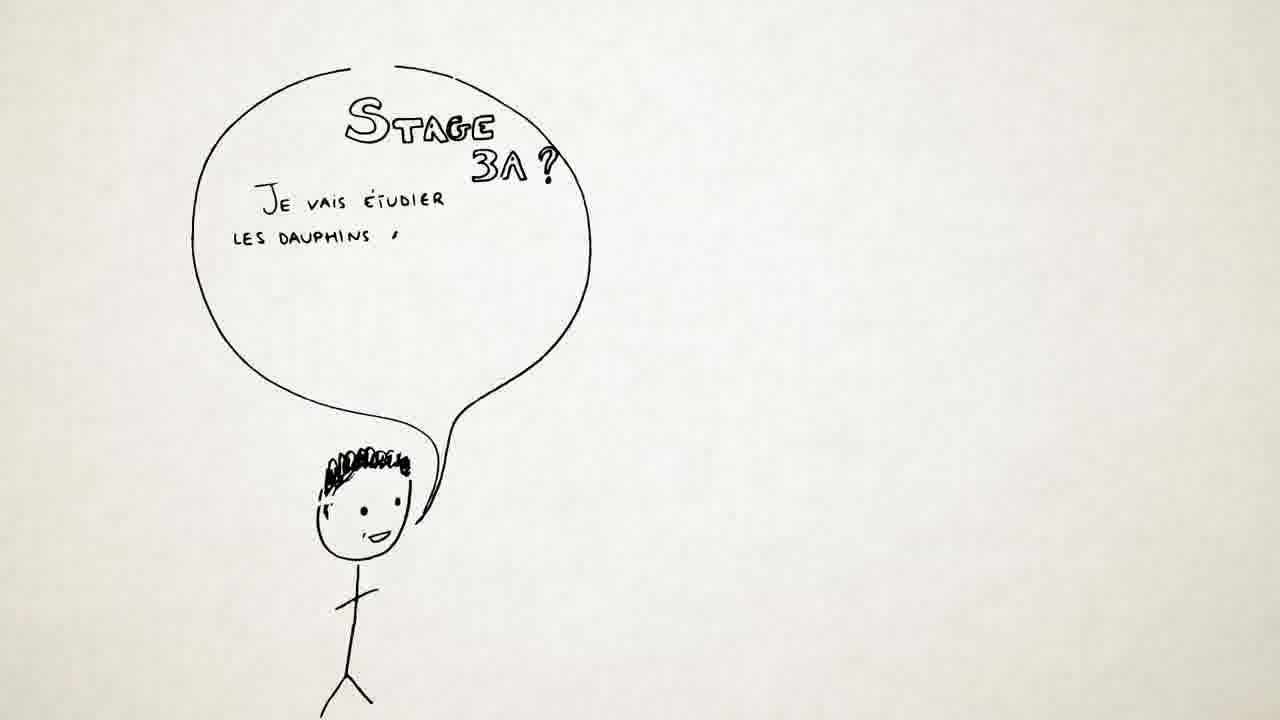 STAGE
3A ?
JE VAIS ÉTUDIER
LES DAUPHINS